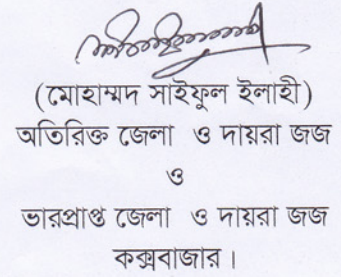 (মোহাম্মদ সাইফুল ইলাহী)
অতিরিক্ত জেলা ও দায়রা জজ
ও
ভারপ্রাপ্ত জেলা ও দায়রা জজ
কক্সবাজার।